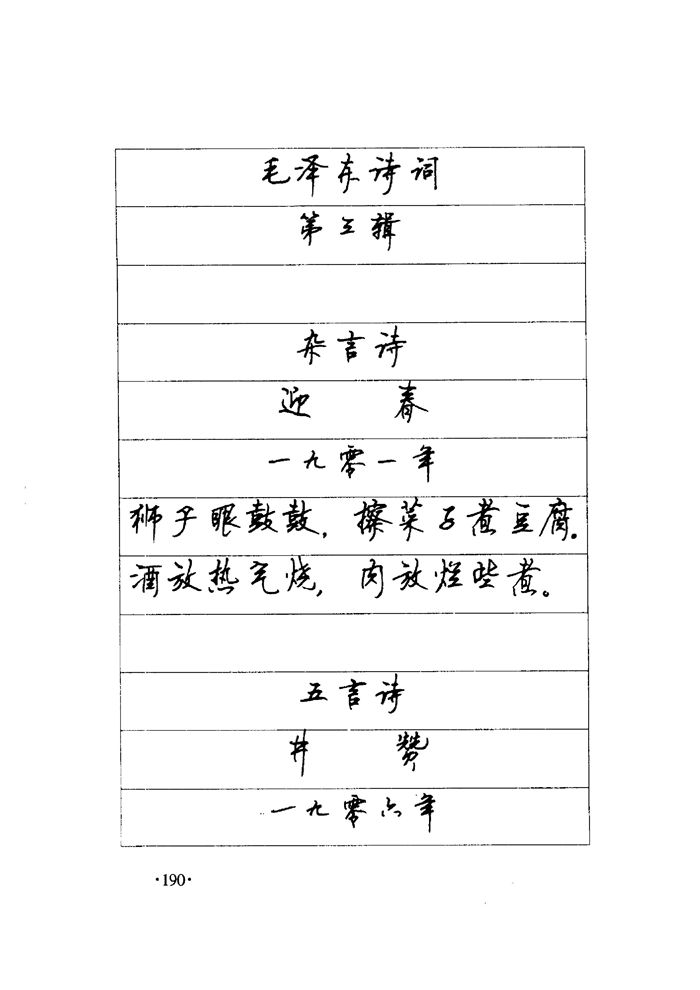 毛泽东诗词
第三辑
杂言诗
迎 春
一九零一年
狮子眼鼓鼓,擦菜子煮豆腐。
酒放热气烧,肉放烂些煮。
五言诗
井 赞
一九零六年
·190·